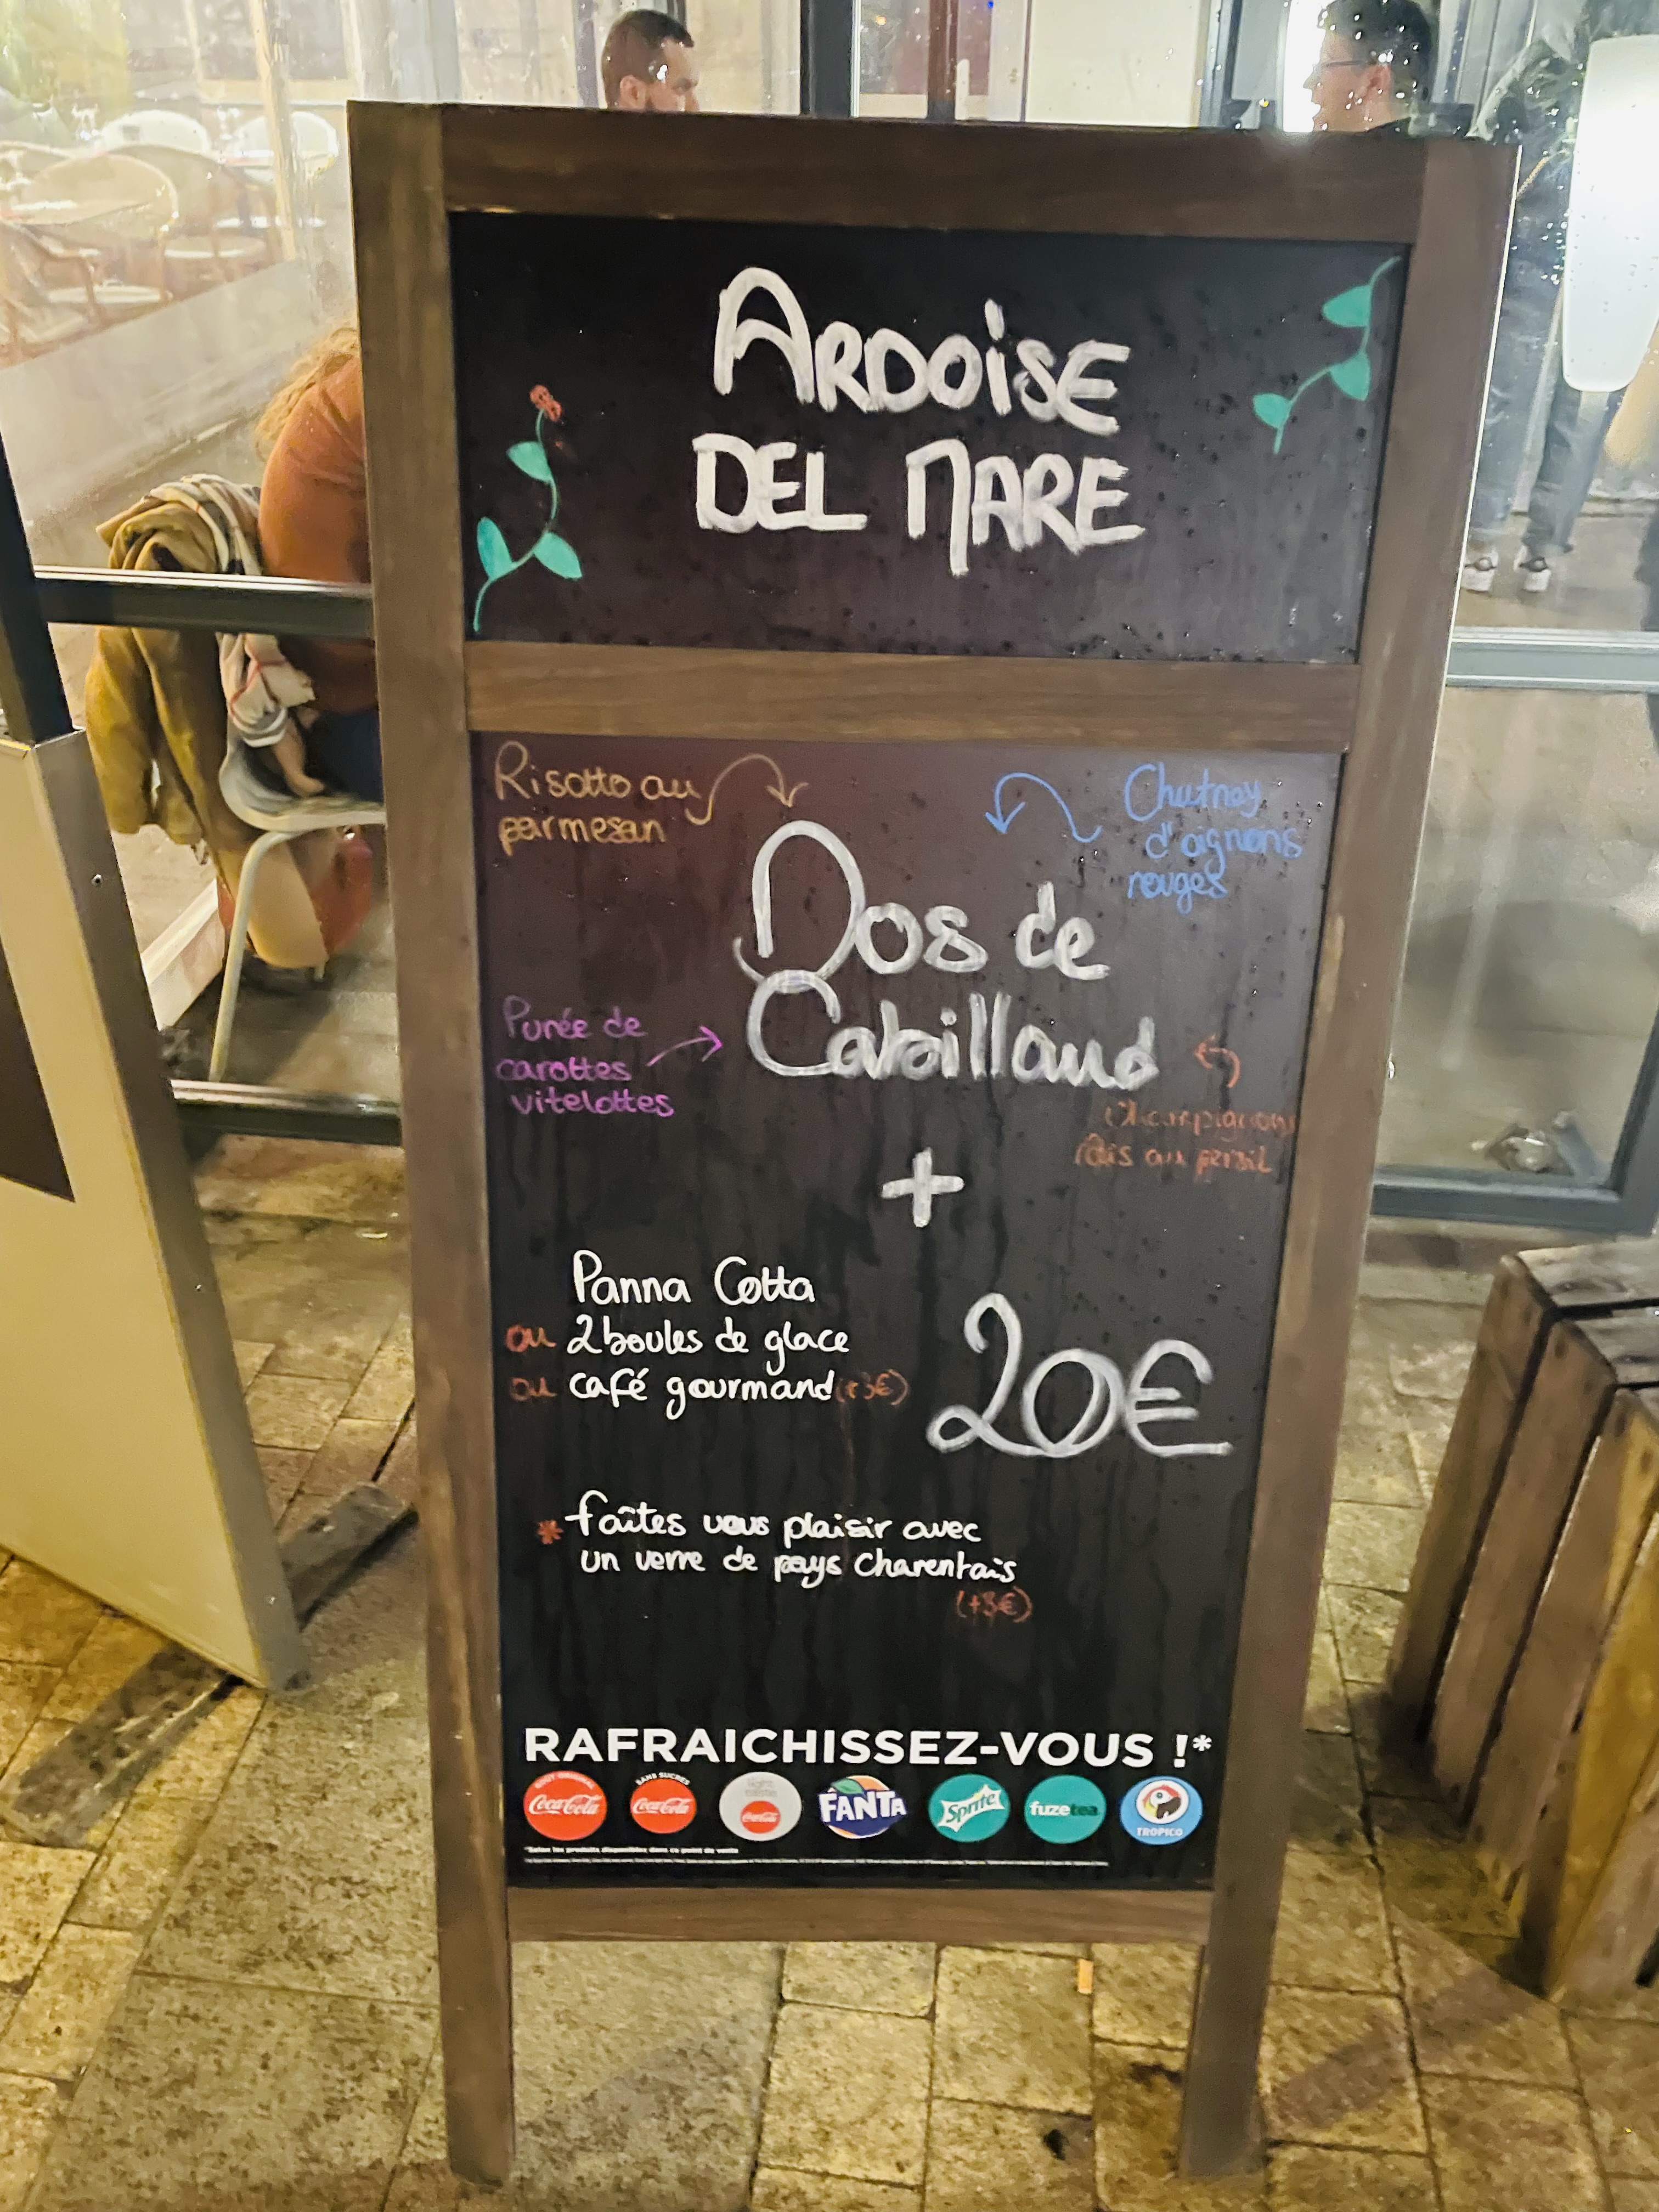 ARDOISE
DEL MARE
Risotto au
parmesan
Chutney
d'oignons
rouges
Dos de
Cabillaud
Purée de
carottes
vitelottes
Champignons
au persil
+
Panna Cotta
ou 2 boules de glace
ou café gourmand (+3€)
20€
* faîtes vous plaisir avec
un verre de pays Charentais
(+3€)
RAFRAICHISSEZ-VOUS !*
GOÛT ORIGINAL
Coca-Cola
SANS SUCRES
Coca-Cola
light
Coca-Cola
FANTA
Sprite
fuzetea
TROPICO
*Selon les produits disponibles dans ce point de vente